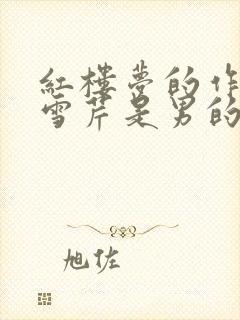 紅樓夢的作
雪芹是男的
旭佐